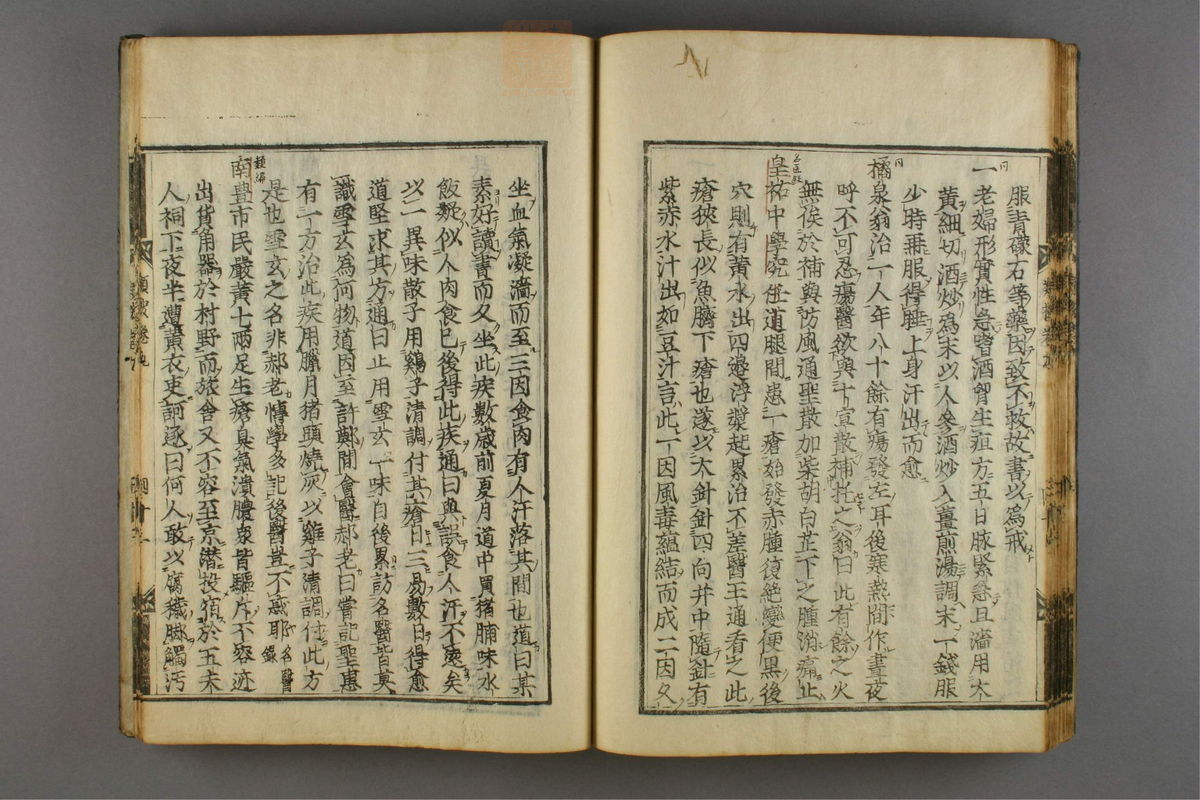 服青礞石等藥因致不救故書以爲戒
一老婦形實性急嗜酒腎生疽方五日脉緊急且濇用大
黃細切酒炒爲末以人參酒炒入薑煎湯調末一錢服
少時再服得睡上身汗出而愈
橘泉翁治一人年八十餘有瘍發左耳後寒熱間作晝夜
呼不可忍瘍醫欲與十宣散補托之翁曰此有餘之火
無俟於補與防風通聖散加柴胡白芷下之腫消痛止
皇祐中學究任道腿間患一瘡始發赤腫復絶變便黑後
穴則有黃水出四邊浮漿起累治不差醫王通看之此
瘡狹長似魚臍下瘡也遂以大針針四向井中隨針有
紫赤水汁出如豆汁言此一因風毒蘊結而成二因久
坐血氣凝濇而至三因食肉有人汗落其間也道曰某
素好讀書而久坐此疾數歲前夏月道中買猪脯味水
飯疑似人肉食已後得此疾通曰與誤食人汗不遠矣
以一異味散子用鷄子清調付其瘡日三易數日得愈
道堅求其方通曰止用雪玄一味自後累訪名醫皆莫
識雪玄爲何物道因至許鄭間會醫郝老曰嘗記聖惠
有一方治此疾用臘月猪頭燒灰以雞子清調付此方
是也雪玄之名非郝老博學多記後醫豈不惑耶 名醫錄
南豊市民嚴黃七兩足生瘡臭氣潰膿衆皆驅斥不容迹
出貨角器於村野而旅舍又不容至京潜投宿於五未
人祠下夜半遭黃衣吏訶逐曰何人敢以腐穢脚觸汚